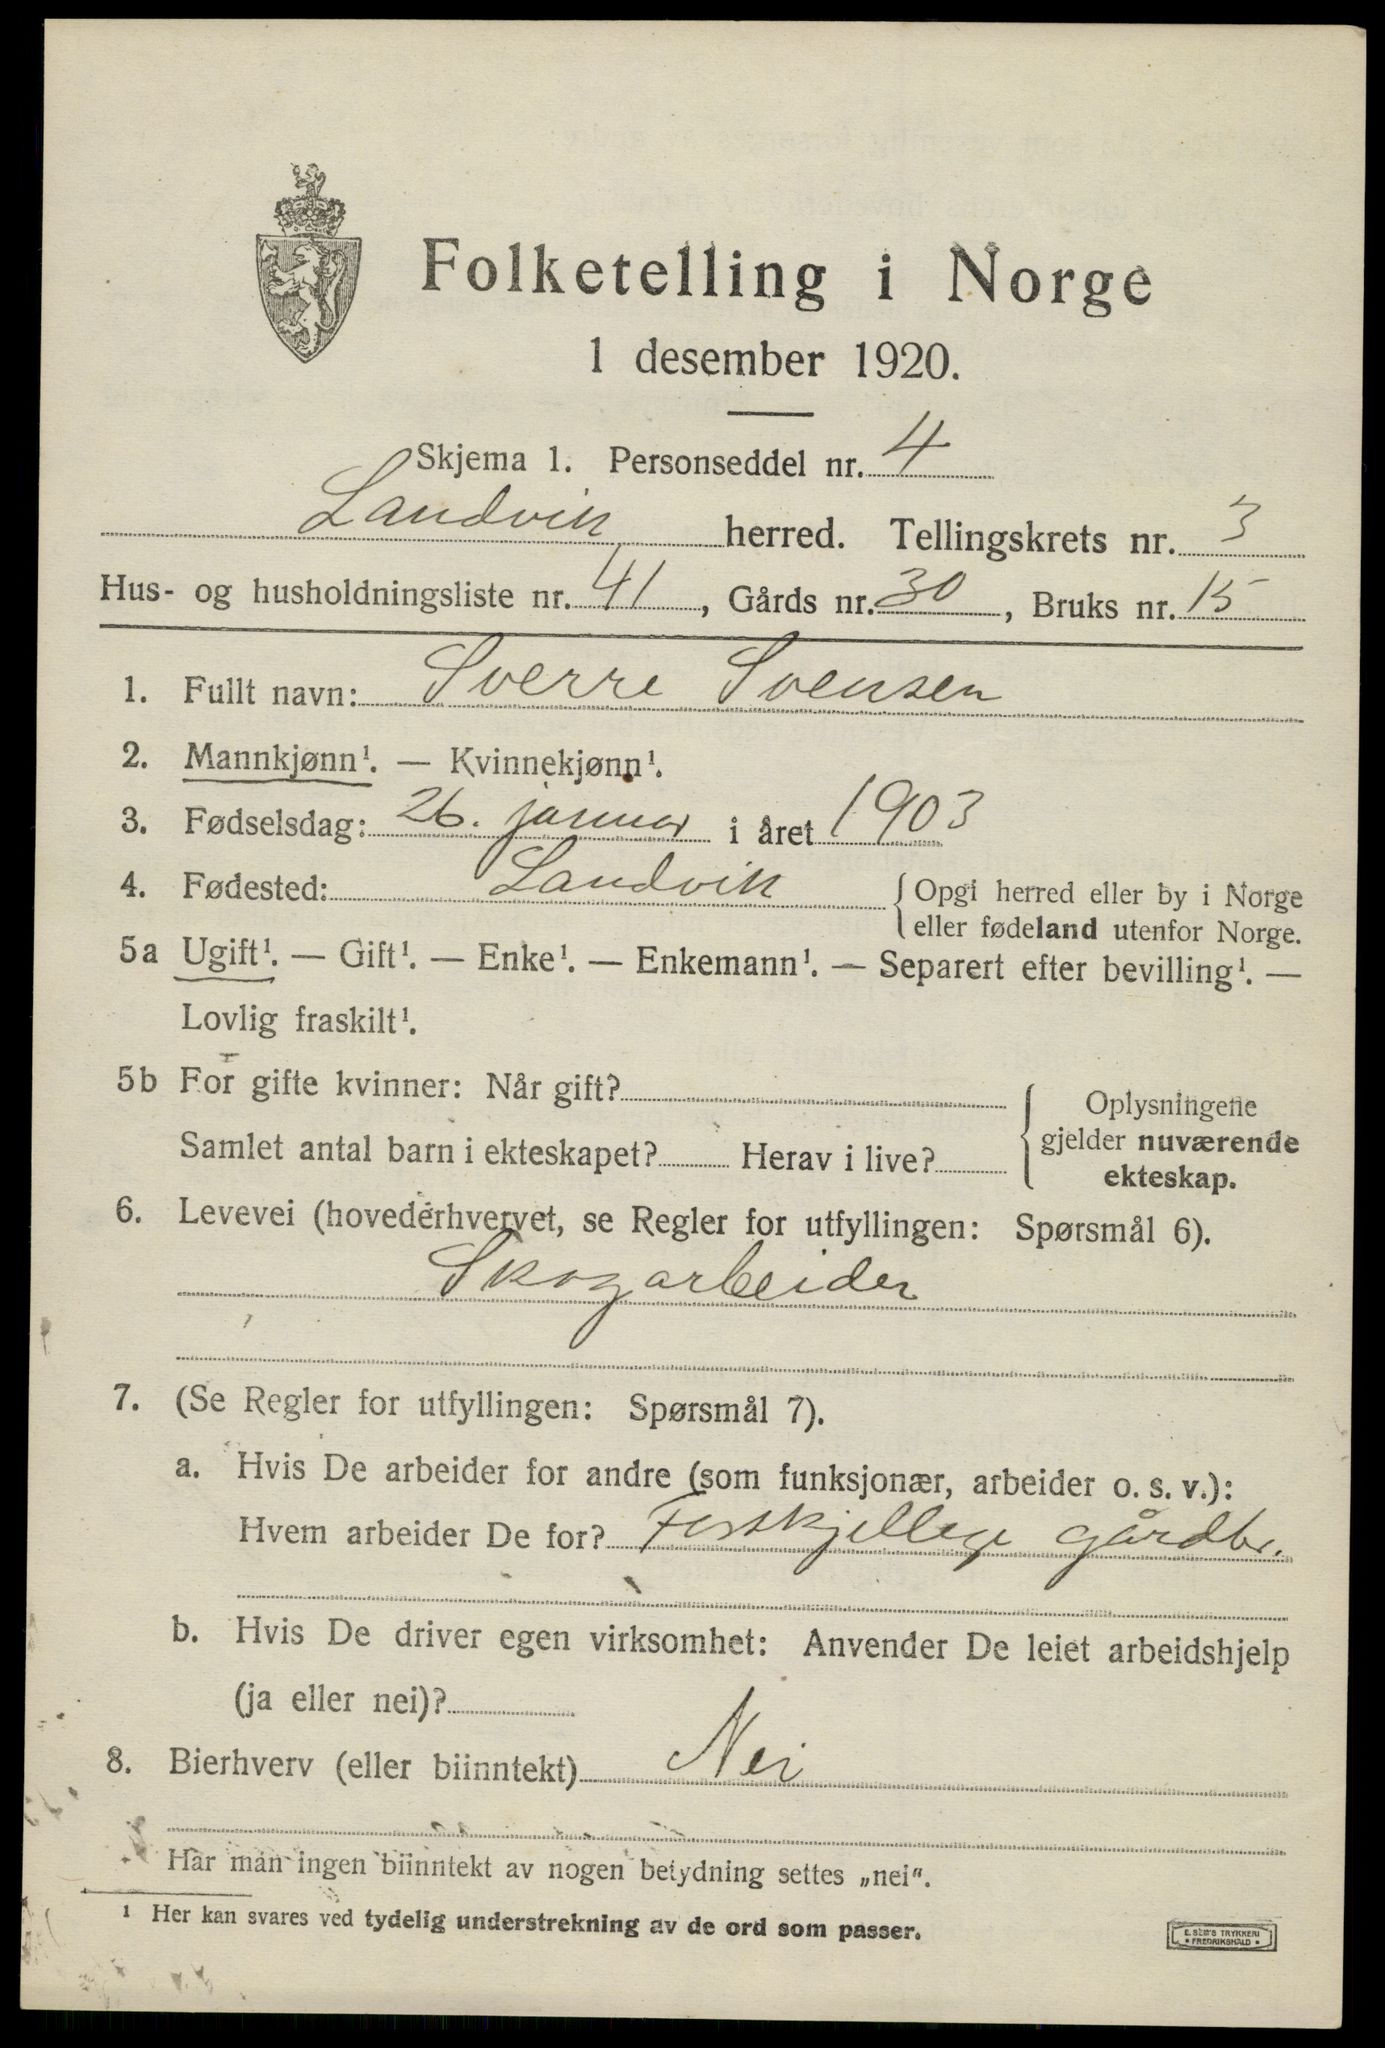 Folketelling i Norge
1 desember 1920.
Skjema 1. Personseddel nr. 4
Landvik herred. Tellingskrets nr. 3
Hus- og husholdningsliste nr. 41, Gårds nr. 30, Bruks nr. 15
1. Fullt navn: Sverre Svensen
2. Mannkjønn¹. — Kvinnekjønn¹.
3. Fødselsdag: 26. januar i året 1903
4. Fødested: Landvik { Opgi herred eller by i Norge
eller fødeland utenfor Norge.
5a Ugift¹. — Gift¹. — Enke¹. — Enkemann¹. — Separert efter bevilling¹. —
Lovlig fraskilt¹.
5b For gifte kvinner: Når gift?
Samlet antal barn i ekteskapet? Herav i live?
{ Oplysningene
gjelder nuværende
ekteskap.
6. Levevei (hovederhvervet, se Regler for utfyllingen: Spørsmål 6).
Skogarbeider
7. (Se Regler for utfyllingen: Spørsmål 7).
a. Hvis De arbeider for andre (som funksjonær, arbeider o. s. v.):
Hvem arbeider De for? Forskjellige gårdbr.
b. Hvis De driver egen virksomhet: Anvender De leiet arbeidshjelp
(ja eller nei)?
8. Bierhverv (eller biinntekt) Nei
Har man ingen biinntekt av nogen betydning settes „nei“.
¹ Her kan svares ved tydelig understrekning av de ord som passer.
E. SEM'S TRYKKERI
• FREDRIKSHALD •